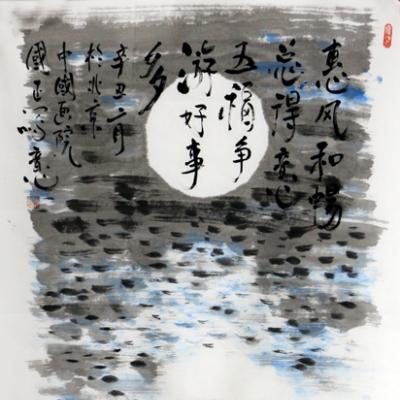 惠风和暢
得意
五福争
游好事
多
辛丑二月
於北京
中國画院
國